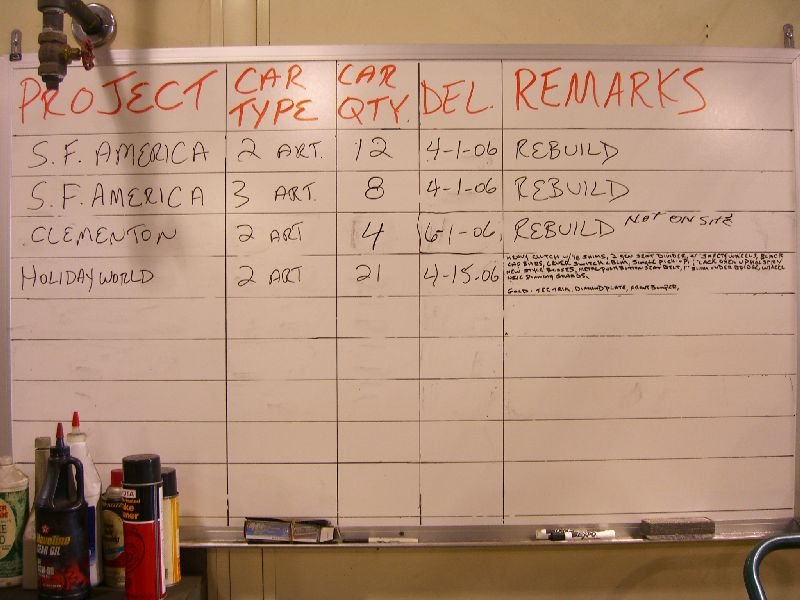 PROJECT CAR TYPE CAR QTY. DEL. REMARKS
S.F. AMERICA 2 ART. 12 4-1-06 REBUILD
S.F. AMERICA 3 ART. 8 4-1-06 REBUILD
CLEMENTON 2 ART 4 6-1-06 REBUILD NOT ON SITE
HOLIDAY WORLD 2 ART 21 4-15-06
HEAVY CLUTCH W/ SHIMS, 2 SEAT DIVIDER, W/ SAFETY WHEELS, BLACK
LAP BARS, LEVER SWITCH SINGLE PICK-UP, UPHOLSTRY
NEW STYLE SEAT BELT, 1" SHIM UNDER BRIDGE, WHEEL
GUARDS.
GOLD DIAMOND PLATE, FRONT BUMPER,
Havoline
GEAR OIL
EXPO